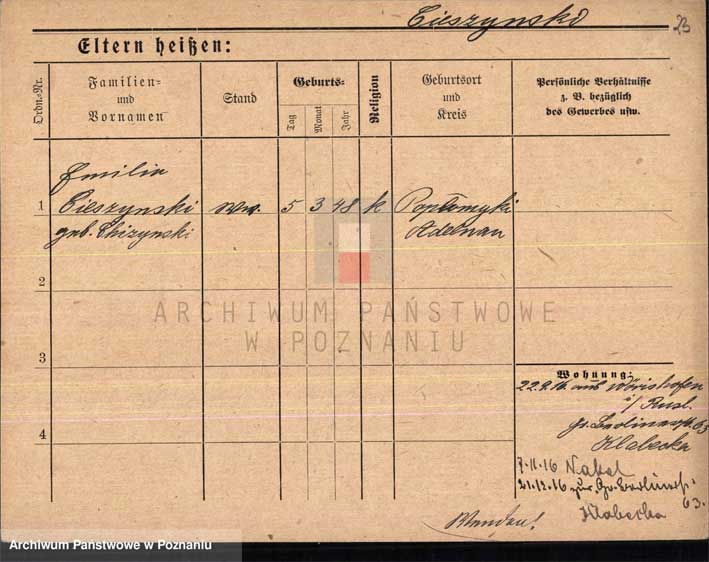 Cieszynski
23
Eltern heißen:
Ordn.-Nr.
Familien- und Vornamen
Stand
Geburts-
Tag
Monat
Jahr
Religion
Geburtsort und Kreis
Persönliche Verhältnisse z. B. bezüglich des Gewerbes usw.
Emilia
1 Cieszynski Ww. 5 3 48 k
geb. Chizynski Adelnau
2
3
4
ARCHIWUM PAŃSTWOWE
W POZNANIU
Wohnung:
22.9.16 aus Wörishofen
i/
Gr. Berlinerstr. 63
Klabecka
7.11.16 Nakel
21.12.16 zur. Gr. Berlinerstr.
63.
Klabecka
Archiwum Państwowe w Poznaniu